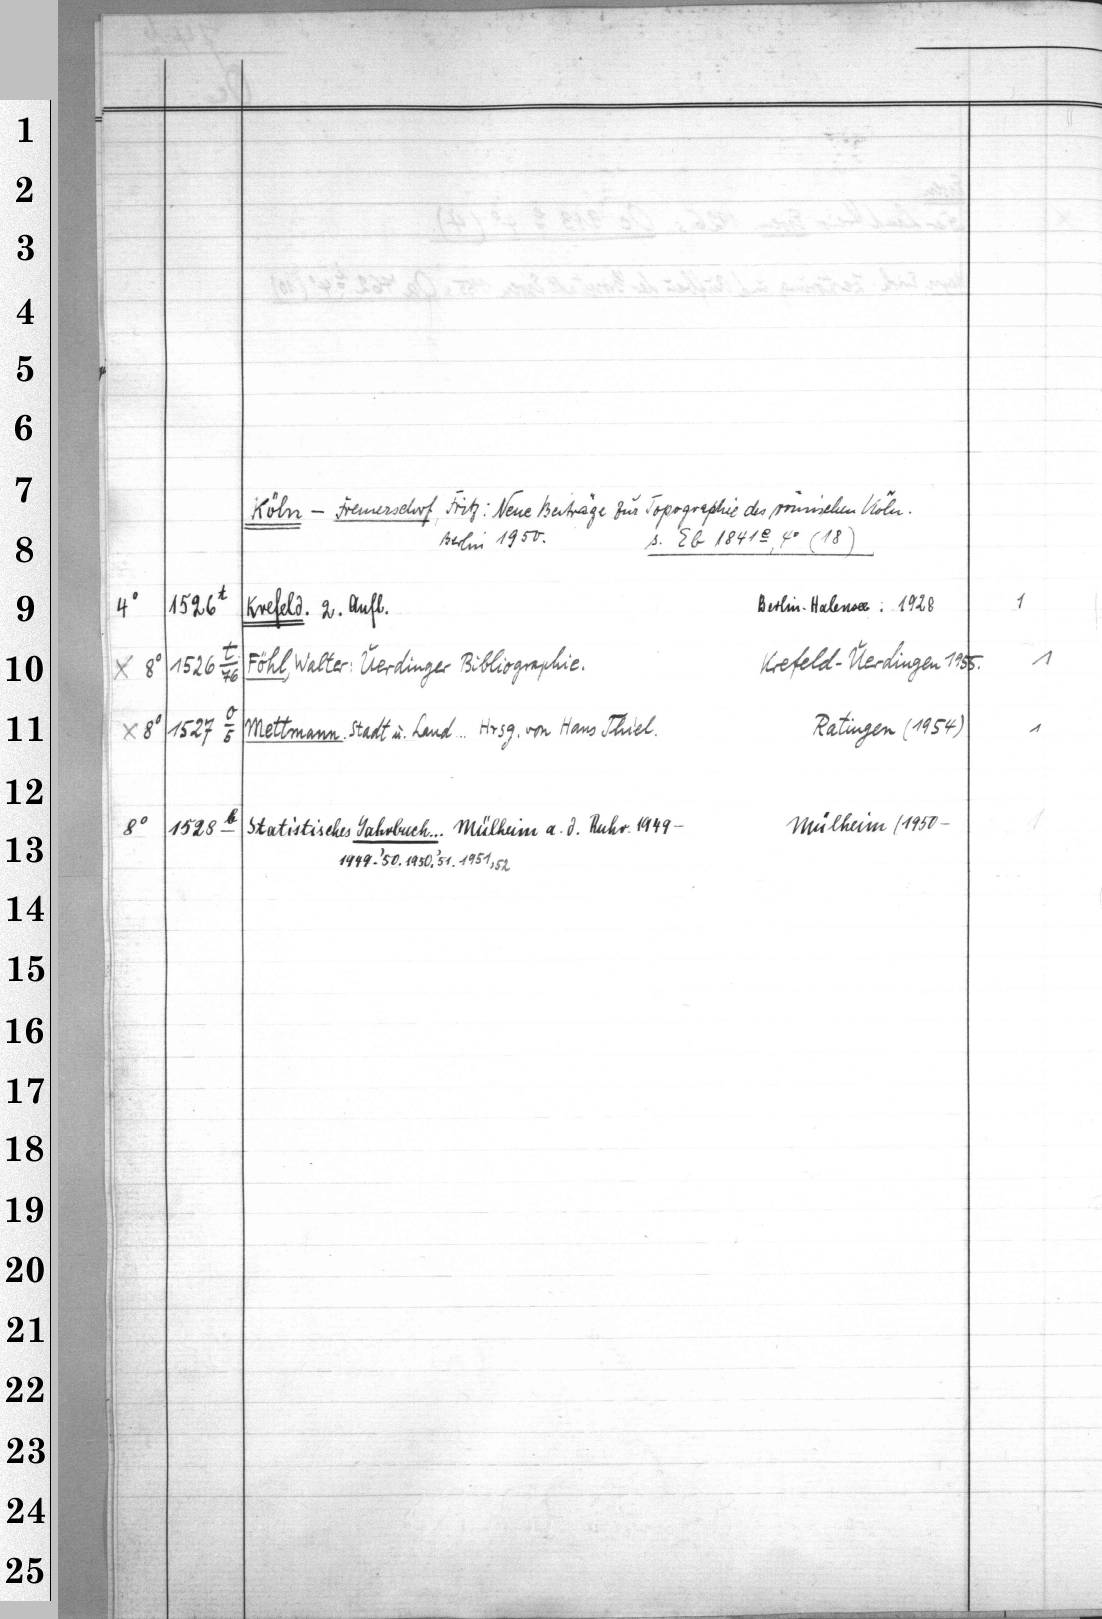 1
2
3
4
5
6
7
Köln – Fremersdorf, Fritz: Neue Beiträge zur Topographie des römischen Köln.
Berlin 1950. s. Eb 1841e, 4° (18)
8
9 4° 1526t Krefeld. 2. Aufl. Berlin-Halensee: 1928 1
10 X 8° 1526 t/76 Föhl, Walter: Ürdinger Bibliographie. Krefeld-Ürdingen 1955. 1
11 X 8° 1527 o/5 Mettmann. Stadt u. Land... Hrsg. von Hans Thiel. Ratingen (1954) 1
12
8° 1528 b Statistisches Jahrbuch... Mülheim a. d. Ruhr. 1949– Mülheim (1950– 1
13 1949-'50. 1950,'51. 1951,52
14
15
16
17
18
19
20
21
22
23
24
25